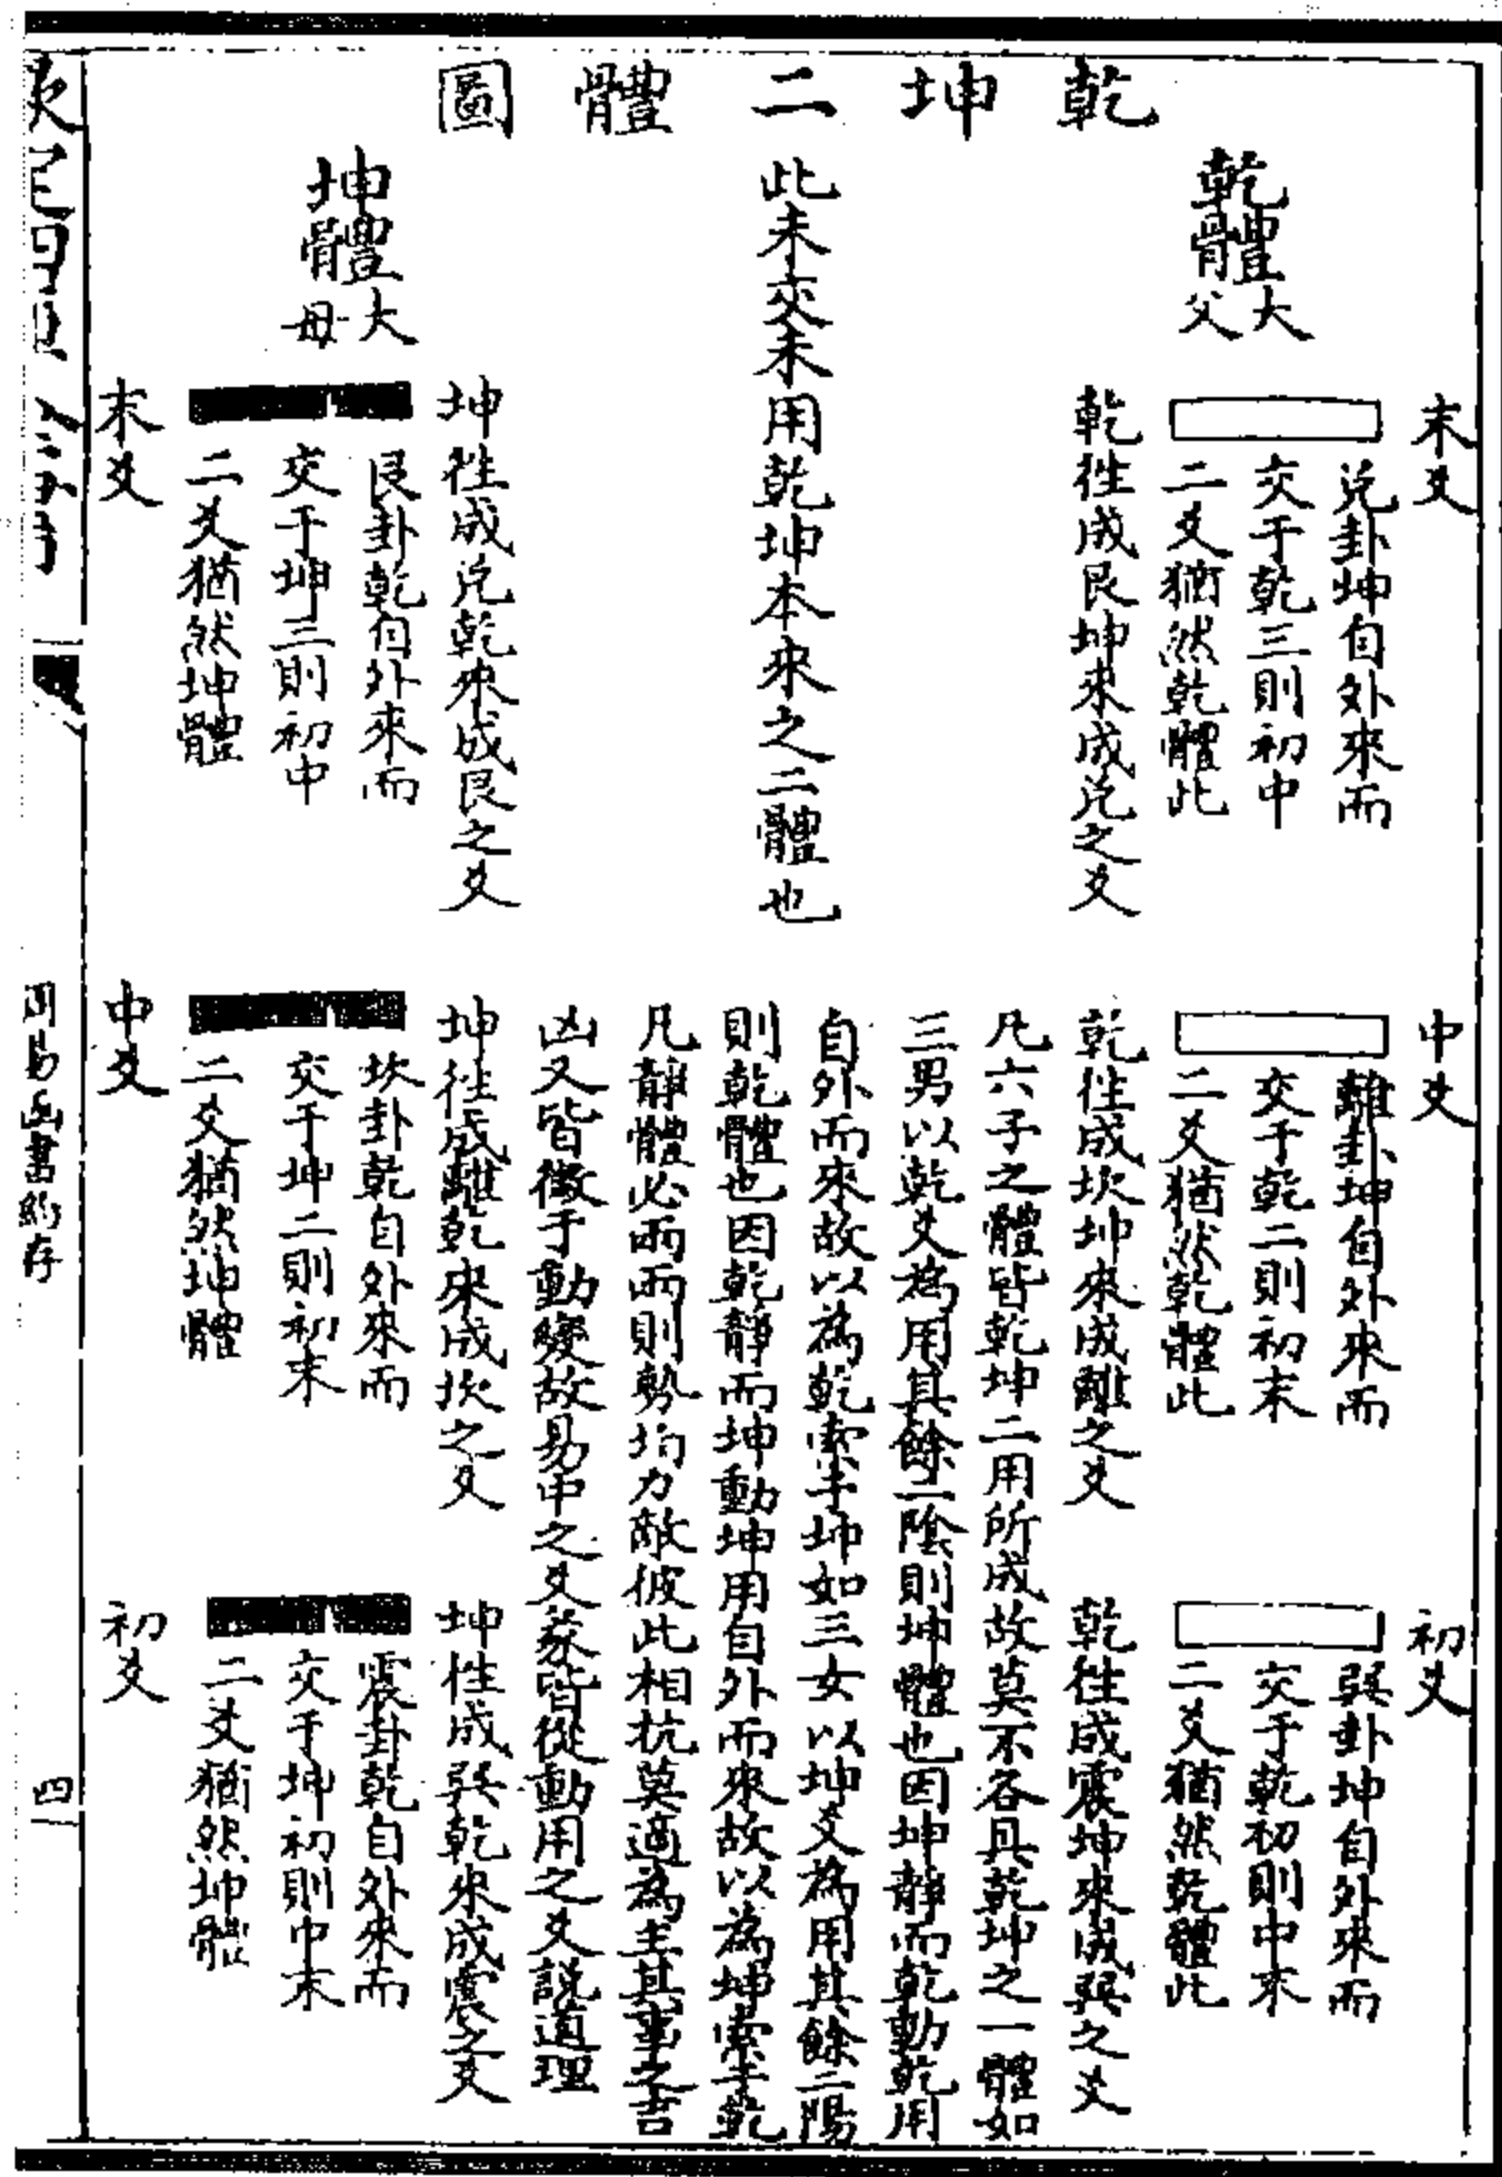 乾坤二體圖
乾體大父
末爻
兌卦坤自外來而
交于乾三則初中
二爻猶然乾體此
乾徃成艮坤來成兌之爻
中爻
離卦坤自外來而
交于乾二則初末
二爻猶然乾體此
乾徃成坎坤來成離之爻
初爻
巽卦坤自外來而
交于乾初則中末
二爻猶然乾體此
乾徃成震坤來成巽之爻
此未交未用乾坤本來之二體也
凡六子之體皆乾坤二用所成故莫不各具乾坤之一體如
三男以乾爻為用其餘二陰則坤體也因坤靜而乾動乾用
自外而來故以為乾索于坤如三女以坤爻為用其餘二陽
則乾體也因乾靜而坤動坤用自外而來故以為坤索于乾
凡靜體必兩兩則勢均力敵彼此相抗莫適為主其事之吉
凶又皆徵于動變故易中之爻彖皆從動用之爻説道理
坤體大母
坤徃成兌乾來成艮之爻
艮卦乾自外來而
交于坤三則初中
二爻猶然坤體
末爻
坤徃成離乾來成坎之爻
坎卦乾自外來而
交于坤二則初末
二爻猶然坤體
中爻
坤徃成巽乾來成震之爻
震卦乾自外來而
交于坤初則中末
二爻猶然坤體
初爻
欽定四庫全書
周易函書約存
四